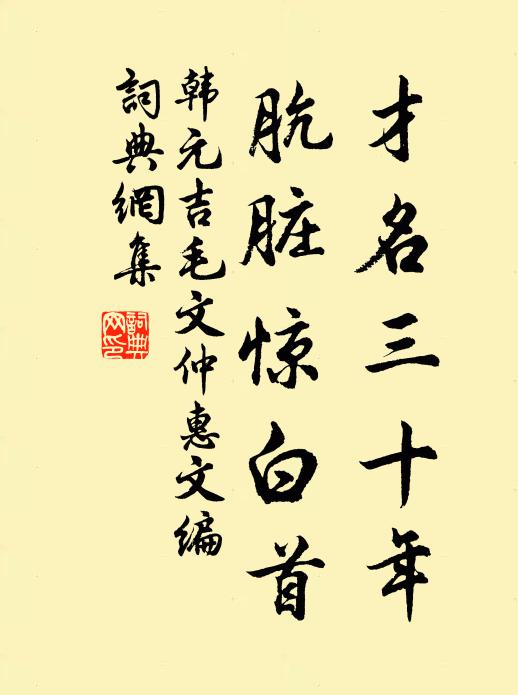 才名三十年
肮脏惊白首
韩元吉毛文仲惠文编
词典網集
詞典网印